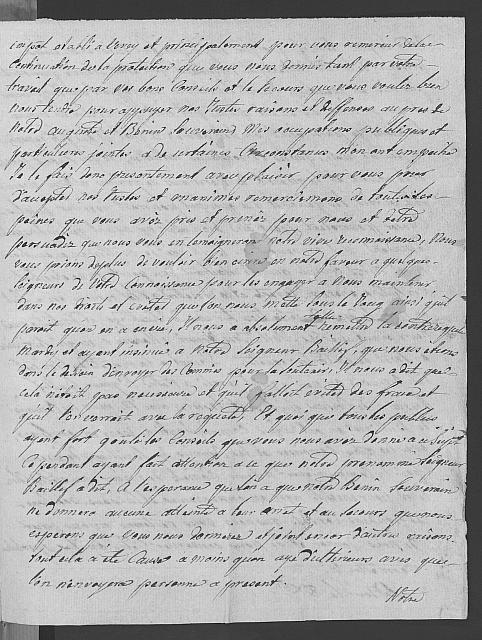 impot etabli a Cerey et principalement pour vous remercier de la
Continuation de la protection que vous nous donnés tant par votre
travail que par vos bons Conseils et le secours que vous voulez bien
nous pour appuyer nos Justes raisons et deffences au pres de
notre auguste et Benin Souverain Mes occupations publiques et
particulieres jointes a de certaines Circonstances mon ont empeché
Je le fais donc presentement avec plaisir pour vous prier
d'accepter nos Justes et unanimes remerciemens de toutes les
peines que vous avez pris et prenéz pour nous et d'etre
persuadéz que nous vous en temoignerons notre vive reconnoissance, Nous
vous prions de plus de vouloir bien ecrire en notre faveur a quelques
Seigneurs de Votre Connoissance pour les engager a nous maintenir
dans nos droits et qu'on nous mette sous le Joug ainsi qu'il
paroit qu'on a envie, Il nous a absolument remettre la
Mardy et ayant insinué a Notre Seigneur Baillif, que nous etions
dans le dessein d'envoyer des Commis pour la soutenir, Il nous a dit que
cela n'etoit pas necessaire et qu'il falloit eviter des fraix et
qu'il l'envoiroit avec la requete, Et quoi que tous les publics
ayent fort gouté les Conseils que vous nous avez donné a ce sujet
Cependant ayant fait attention a ce que notre prenommé Seigneur
Baillif a dit, A l'esperance qu'on a que notre Benin Souverain
ne donnera aucune atteinte a leur et au secours que nous
esperons que vous nous donnerez et joint encor d'autres raisons
tout cela a été Cause a moins qu'on aye d'ulterieurs avis que
l'on n'envoyera personne a present.
Notre